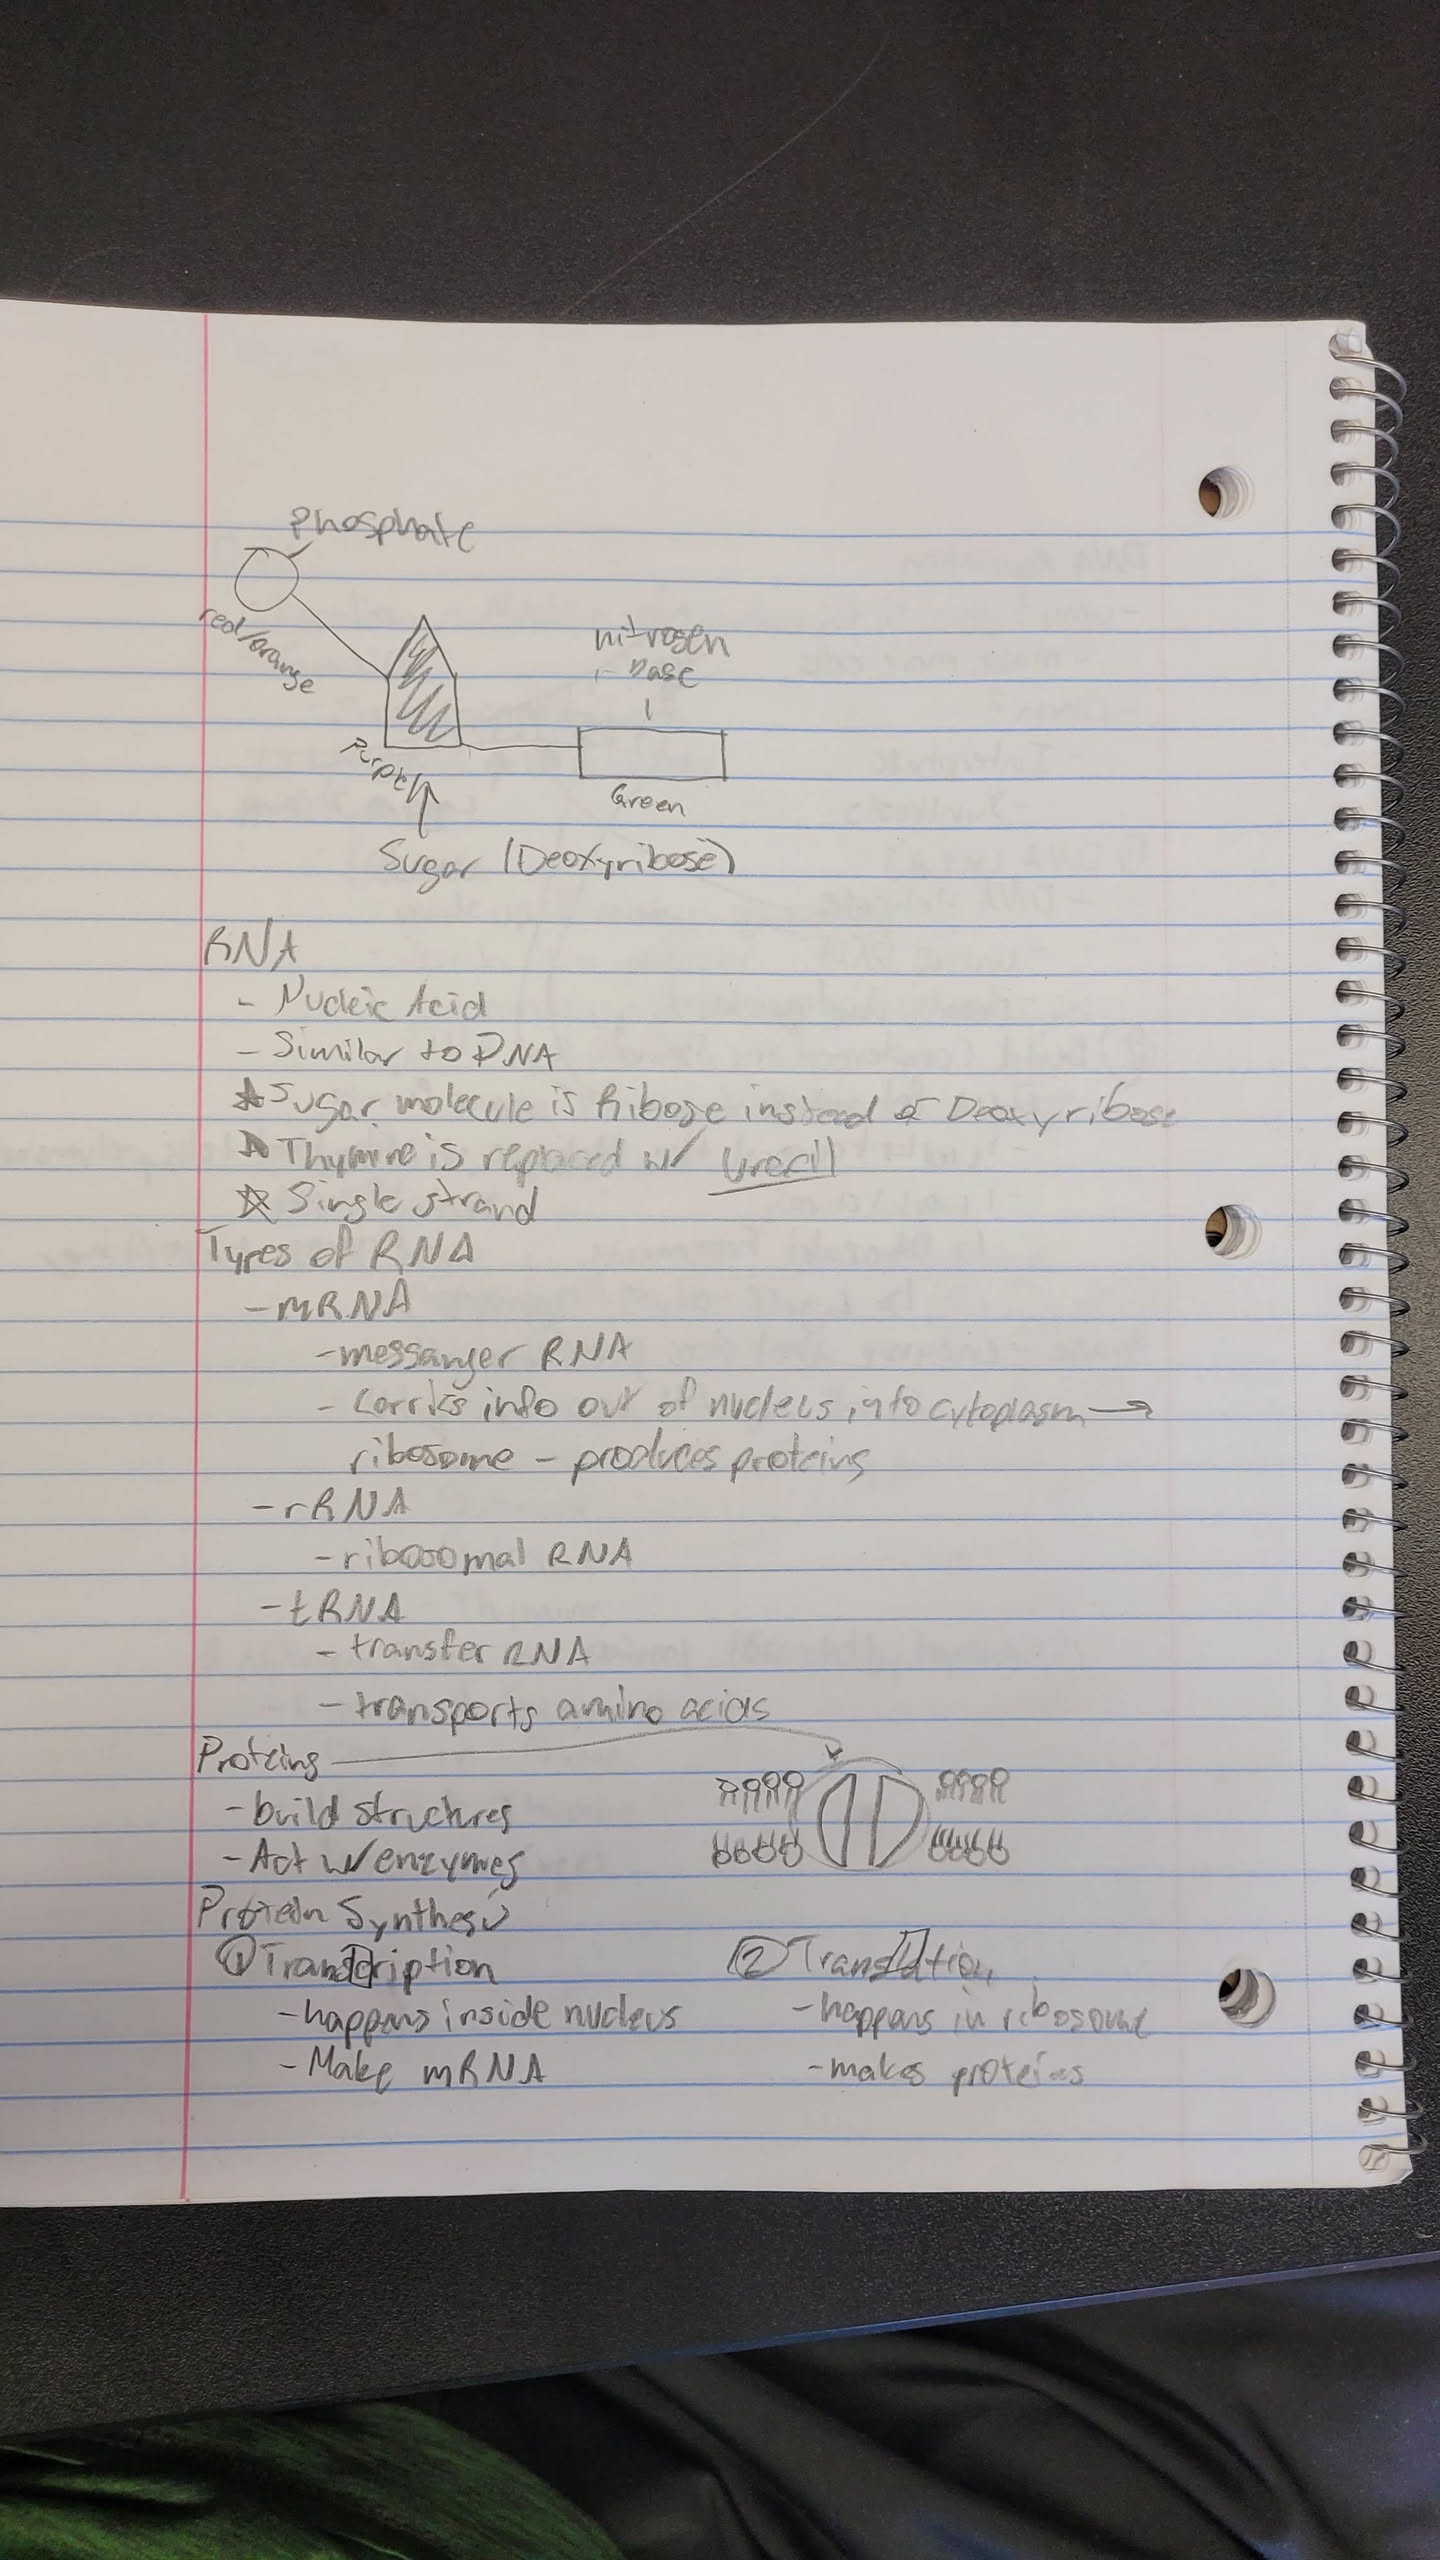 Phosphate
red/orange
nitrogen
base
Purple
Green
Sugar (Deoxyribose)
RNA
- Nucleic Acid
- Similar to DNA
☆ Sugar molecule is Ribose instead of Deoxyribose
☆ Thymine is replaced w/ Urecil
☆ Single strand
Types of RNA
- mRNA
- messanger RNA
- Carries info out of nucleus, into cytoplasm →
ribosome - produces proteins
- rRNA
- ribosomal RNA
- tRNA
- transfer RNA
- transports amino acids
Proteins
- build structures
- Act w/ enzymes
Protein Synthesis
① Transcription ② Translation
- happens inside nucleus - happens in ribosome
- Make mRNA - makes proteins